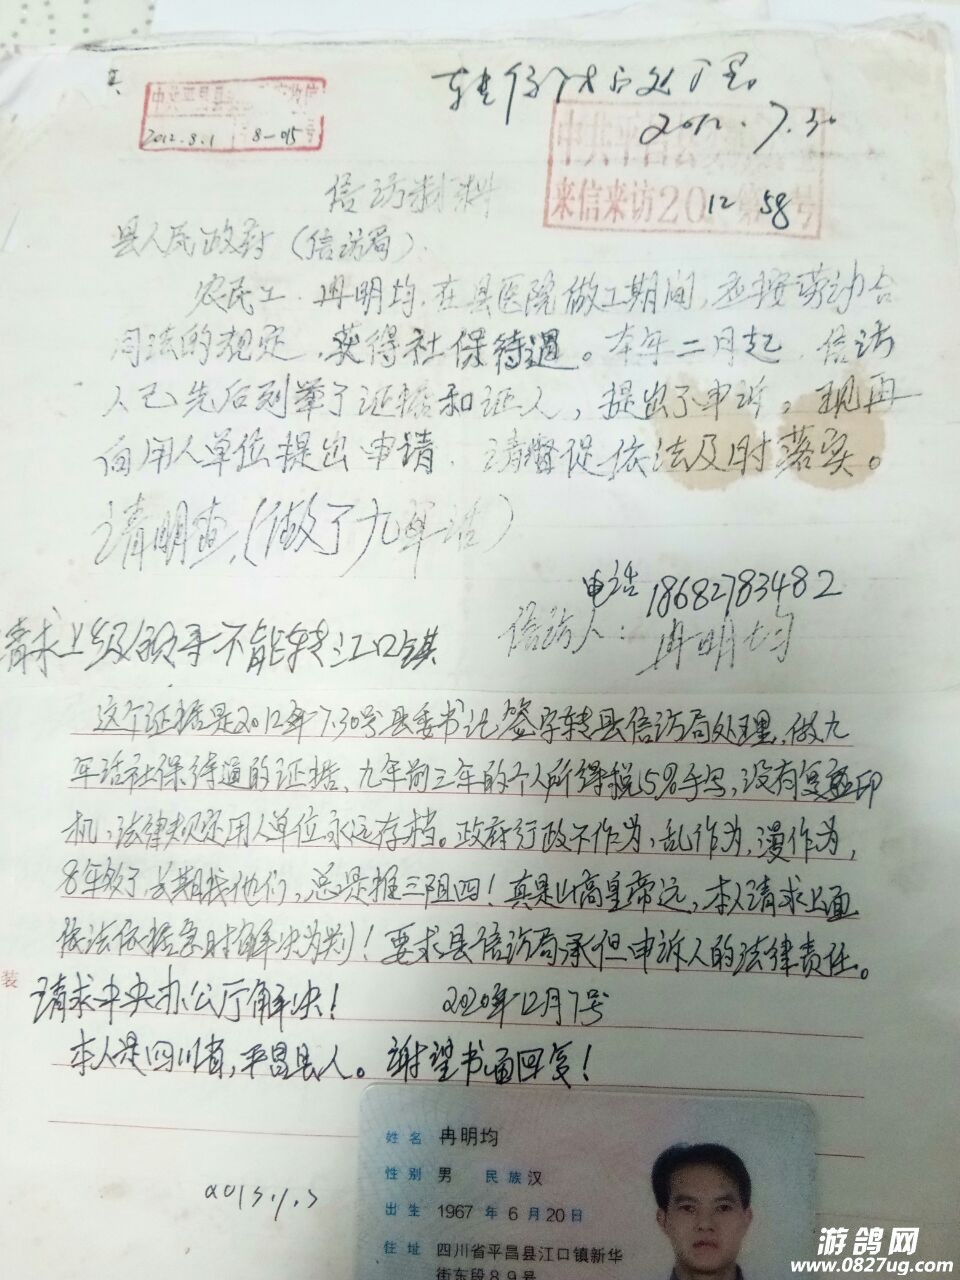 转信访局处理。
2012.7.30
2012.8.1 8-015号
中共平昌县
来信来访2012第58号
信访材料
县人民政府(信访局).
农民工.冉明均.在县医院做工期间,应按劳动合
同法的规定.获得社保待遇。本年二月起.信访
人已先后列举了证据和证人,提出了申诉。现再
向用人单位提出申请.请督促依法及时落实。
请明查,(做了九年活)
电话 18682783482
信访人:冉明均
请求上级领导不能转江口镇
这个证据是2012年7.30号县委书记签字转县信访局处理,做九
年活社保待遇的证据,九年前三年的个人所得税5%手写,没有复印
机,法律规定用人单位永远存档。政府行政不作为,乱作为,漫作为,
8年多了长期找他们,总是推三阻四!真是山高皇帝远,本人请求上面
依法依据急时解决为盼!要求县信访局承但申诉人的法律责任。
装
请求中央办公厅解决! 2020年12月7号
本人是四川省,平昌县人。谢望书面回复!
2013.1.3
姓名 冉明均
性别 男 民族 汉
出生 1967 年 6 月 20 日
住址 四川省平昌县江口镇新华
街东段89号
游鸽网
www.0827ug.com